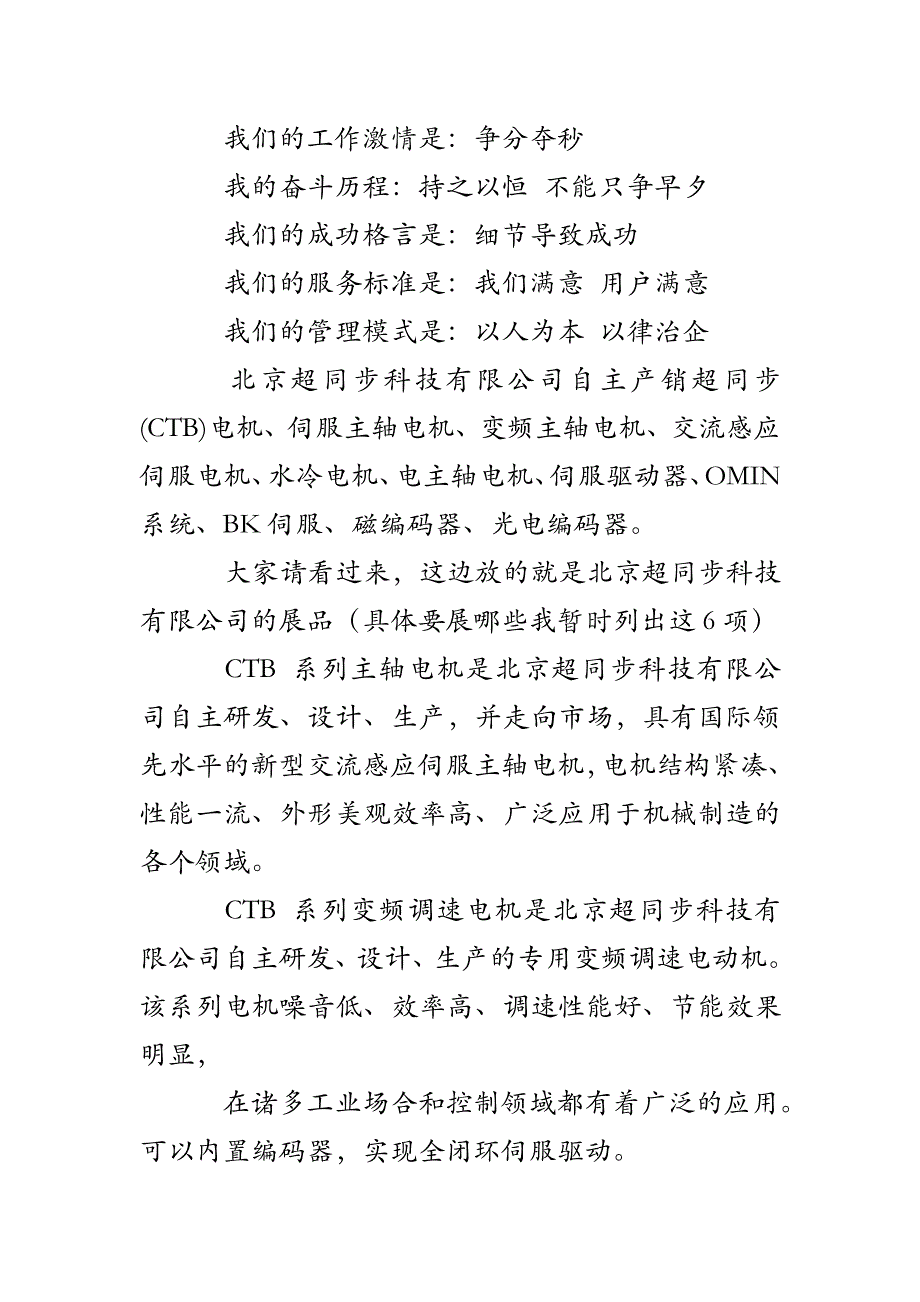 我们的工作激情是：争分夺秒
我的奋斗历程：持之以恒 不能只争早夕
我们的成功格言是：细节导致成功
我们的服务标准是：我们满意 用户满意
我们的管理模式是：以人为本 以律治企
北京超同步科技有限公司自主产销超同步
(CTB)电机、伺服主轴电机、变频主轴电机、交流感应
伺服电机、水冷电机、电主轴电机、伺服驱动器、OMIN
系统、BK 伺服、磁编码器、光电编码器。
大家请看过来，这边放的就是北京超同步科技
有限公司的展品（具体要展哪些我暂时列出这 6 项）
CTB 系列主轴电机是北京超同步科技有限公
司自主研发、设计、生产，并走向市场，具有国际领
先水平的新型交流感应伺服主轴电机，电机结构紧凑、
性能一流、外形美观效率高、广泛应用于机械制造的
各个领域。
CTB 系列变频调速电机是北京超同步科技有
限公司自主研发、设计、生产的专用变频调速电动机。
该系列电机噪音低、效率高、调速性能好、节能效果
明显，
在诸多工业场合和控制领域都有着广泛的应用。
可以内置编码器，实现全闭环伺服驱动。